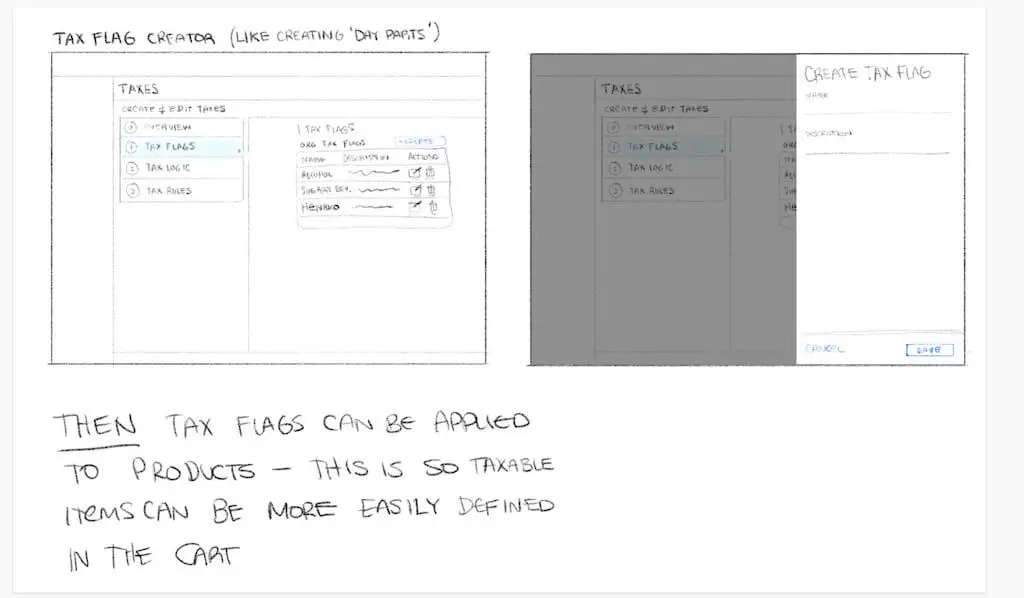 TAX FLAG CREATOR (LIKE CREATING 'DAY PARTS')
TAXES
CREATE & EDIT TAXES
0 OVERVIEW
1 TAX FLAGS
2 TAX LOGIC
3 TAX RULES
1 TAX FLAGS
ORG TAX FLAGS
+ CREATE
NAME DESCRIPTION ACTIONS
ALCOHOL
SUGARY BEV.
TAXES
CREATE & EDIT TAXES
0 OVERVIEW
1 TAX FLAGS
2 TAX LOGIC
3 TAX RULES
CREATE TAX FLAG
NAME
DESCRIPTION
CANCEL
SAVE
THEN TAX FLAGS CAN BE APPLIED
TO PRODUCTS — THIS IS SO TAXABLE
ITEMS CAN BE MORE EASILY DEFINED
IN THE CART